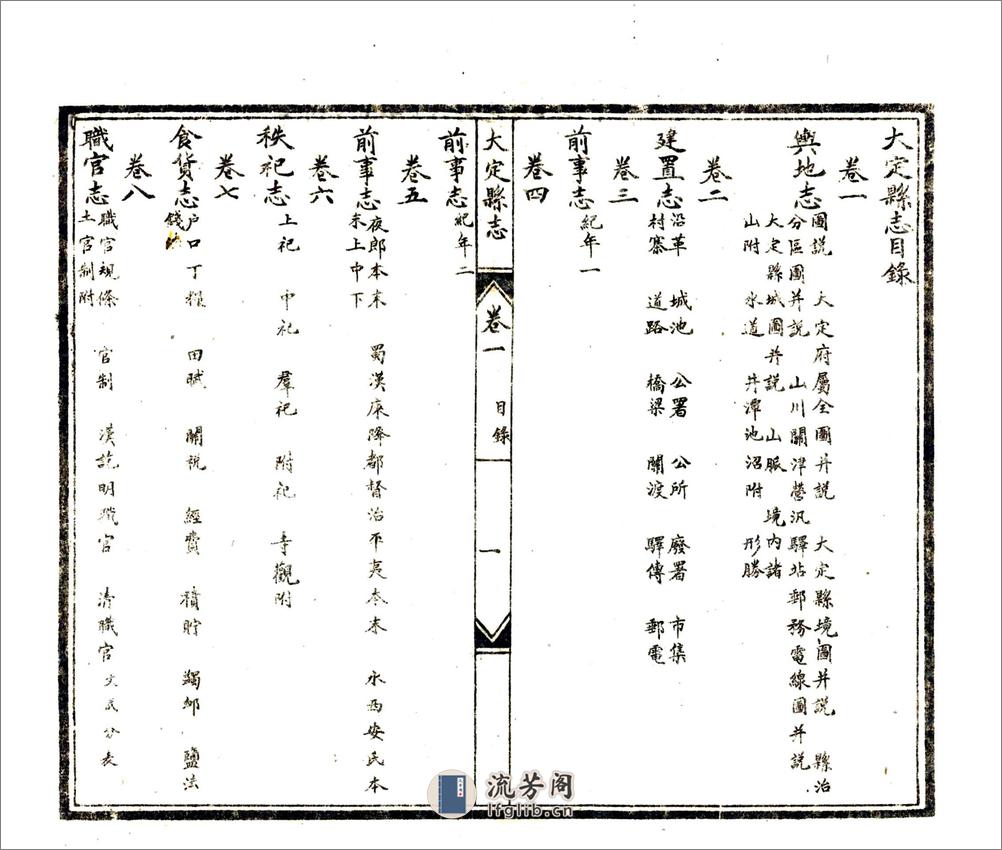 大定縣志目錄
卷一
輿地志
圖說 大定府屬全圖并說 大定縣境圖并說 縣治
分區圖并說 山川關津營汛驛站郵務電線圖并說
大定縣城圖并說 山脈 境內諸
山附 水道 井潭池沼附 形勝
卷二
建置志
沿革 城池 公署 公所 廢署 市集
村寨 道路 橋梁 關渡 驛傳 郵電
卷三
前事志 紀年一
卷四
大定縣志 卷一 目錄 一
前事志 紀年二
卷五
前事志
夜郎本末 蜀漢庲降都督治平夷本末 水西安氏本
末上中下
卷六
秩祀志 上祀 中祀 羣祀 附祀 寺觀附
卷七
食貨志
戶口 丁糧 田賦 關說 經費 積貯 蠲卹 鹽法
錢
卷八
職官志
職官規條 官制 漢訖明職官 清職官文武分表
土官制附
流芳阁
lfglib.cn